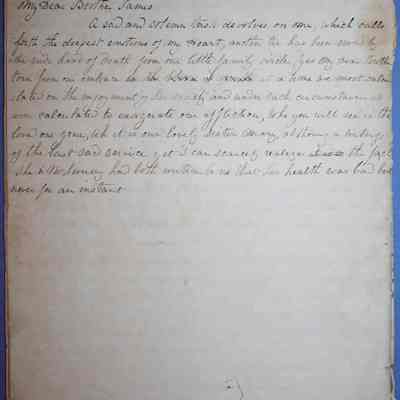 My Dear Brother James
A sad and solemn task devolves on me, which calls
forth the deepest emotions of my heart, another tie has been severed by
the rude hand of death from our little family circle, yes my own
torn from our embrace in the at a time we most calcu
lated on the enjoyment of her society and under such circumstances as
were calculated to our affliction, Who you will say is the
loved one gone, it is our lovely sister
of the last sad service, yet I can scarcely realize the fact
She & Mr had both written to us that her health was bad but
never for an instant